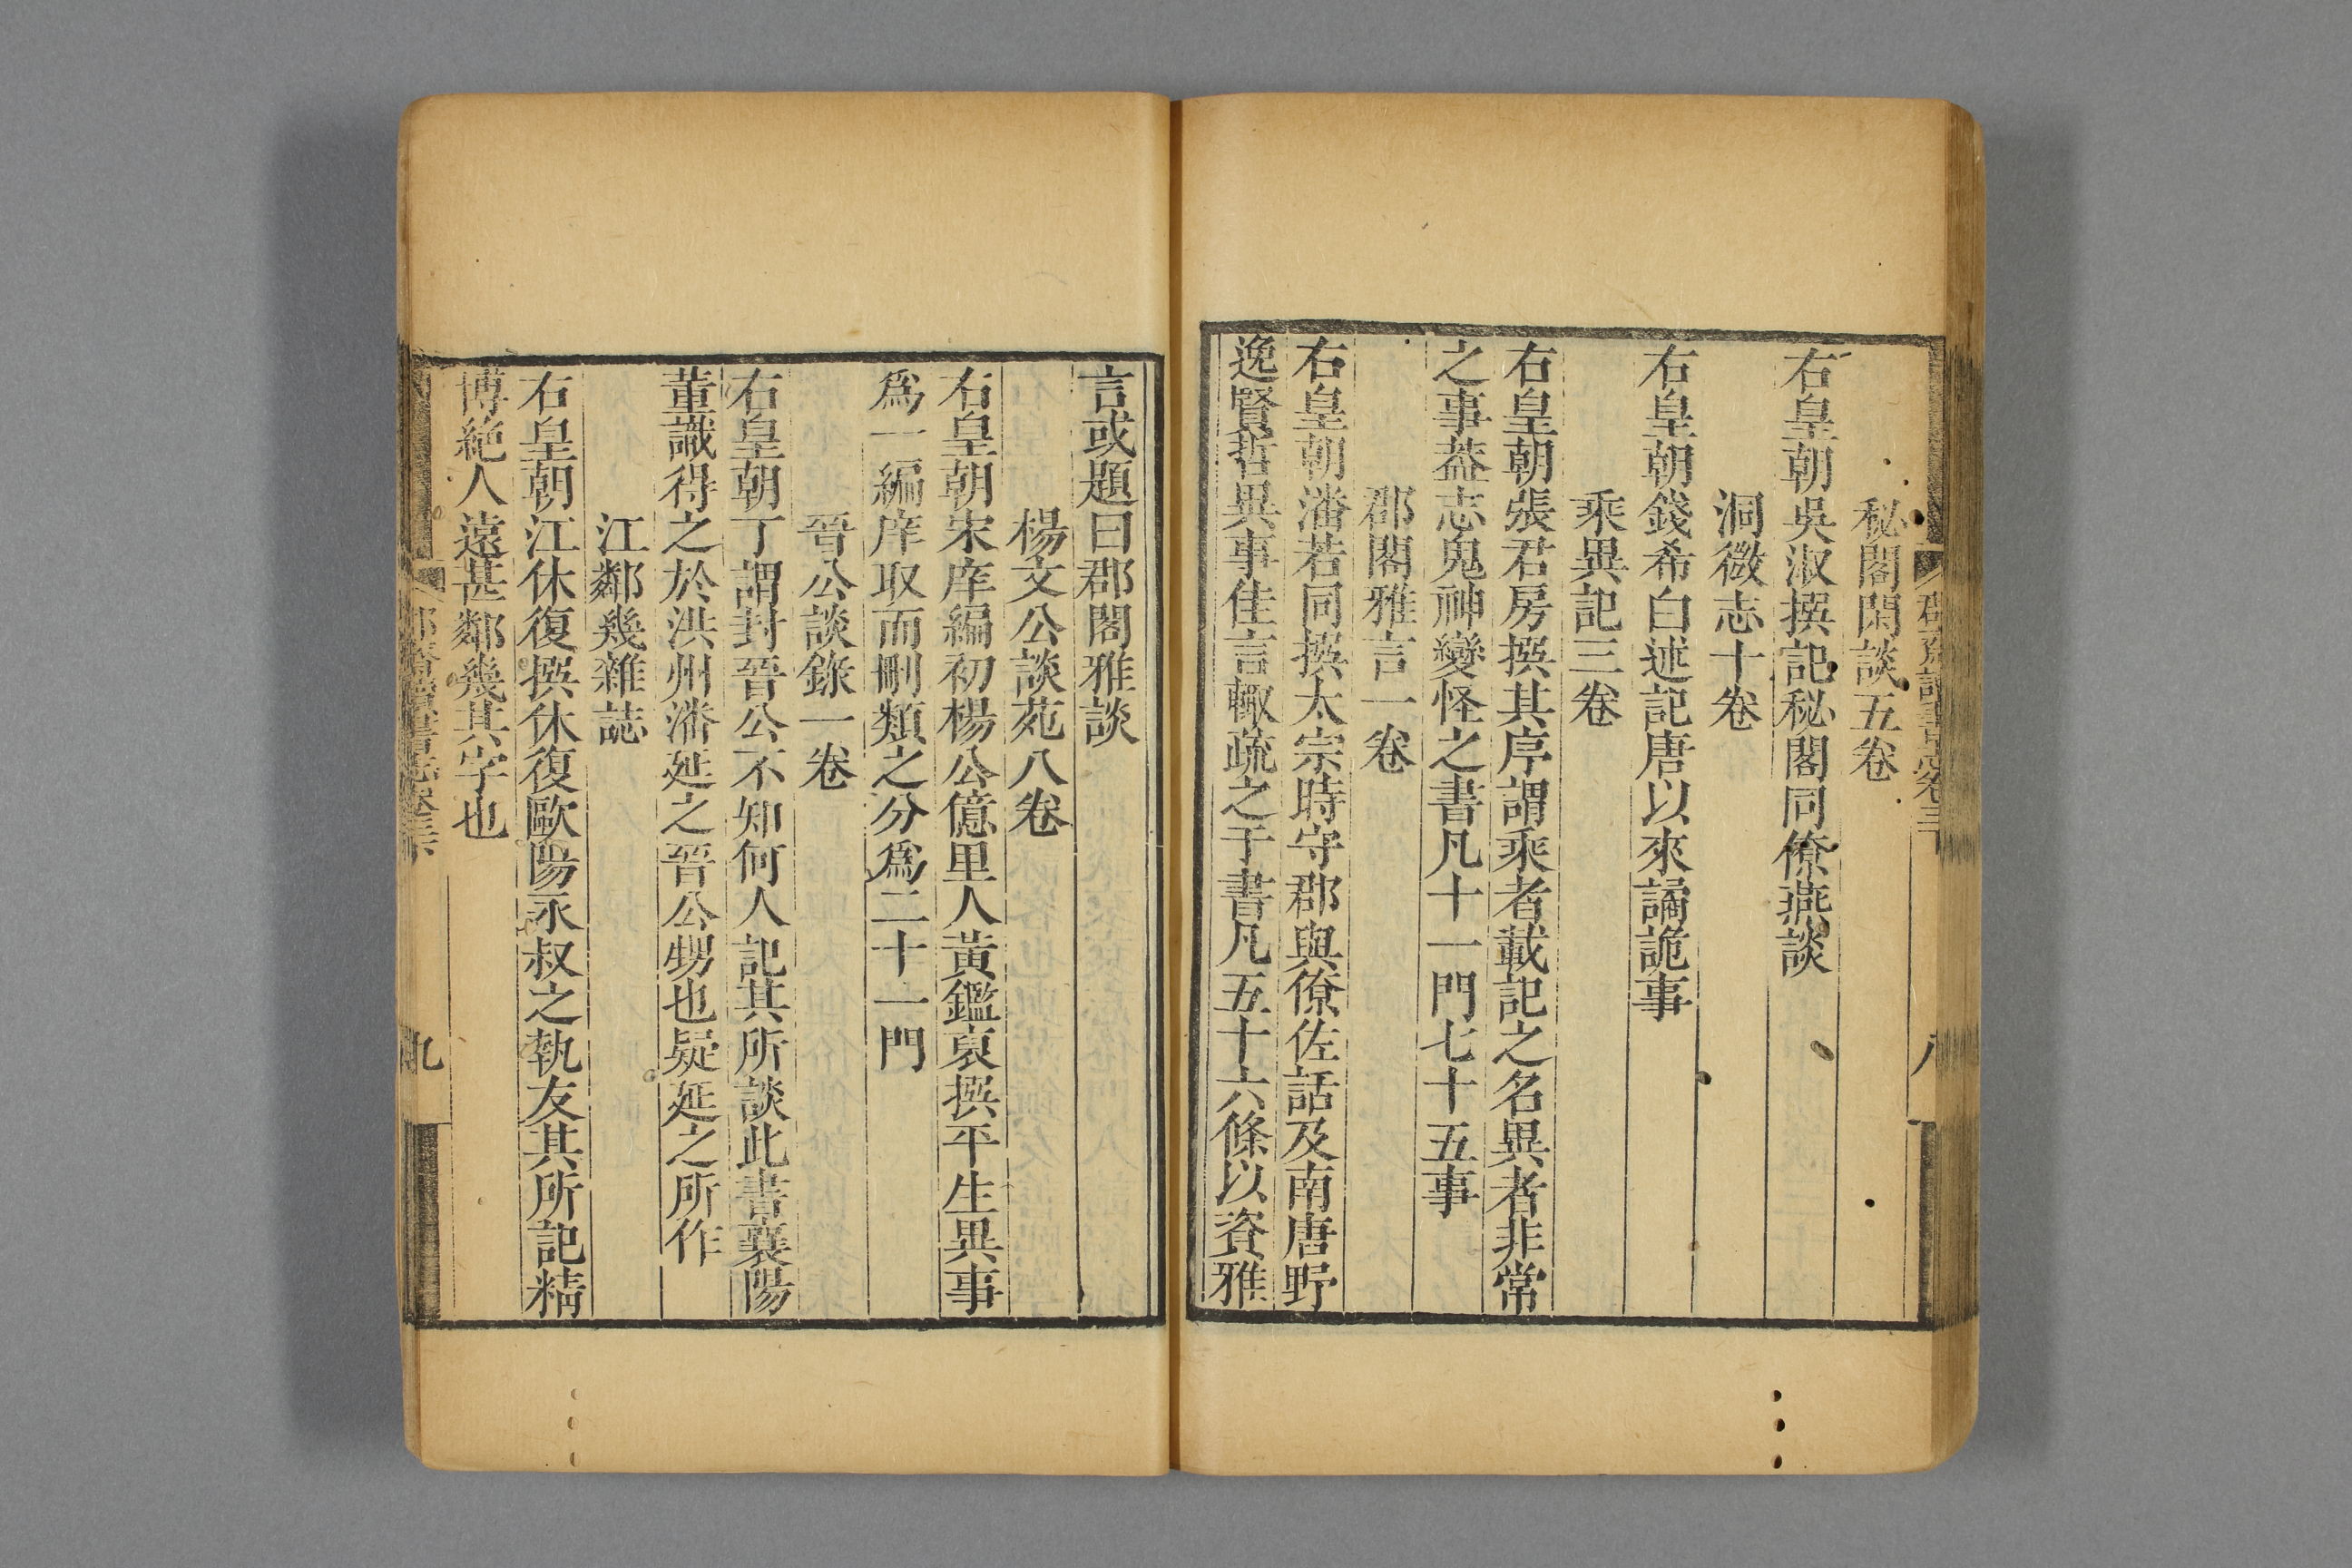 秘閣閑談五卷
右皇朝吳淑撰記秘閣同僚燕談
洞微志十卷
右皇朝錢希白述記唐以來譎詭事
乘異記三卷
右皇朝張君房撰其序謂乘者載記之名異者非常
之事葢志鬼神變怪之書凡十一門七十五事
郡閣雅言一卷
右皇朝潘若同撰太宗時守郡與僚佐話及南唐野
逸賢哲異事佳言輙疏之于書凡五十六條以資雅
言或題曰郡閣雅談
楊文公談苑八卷
右皇朝宋庠編初楊公億里人黃鑑裒撰平生異事
爲一編庠取而刪類之分爲二十一門
晉公談錄一卷
右皇朝丁謂封晉公不知何人記其所談此書襄陽
董識得之於洪州潘延之晉公甥也疑延之所作
江鄰幾雜誌
右皇朝江休復撰休復歐陽永叔之執友其所記精
博絶人遠甚鄰幾其字也
九